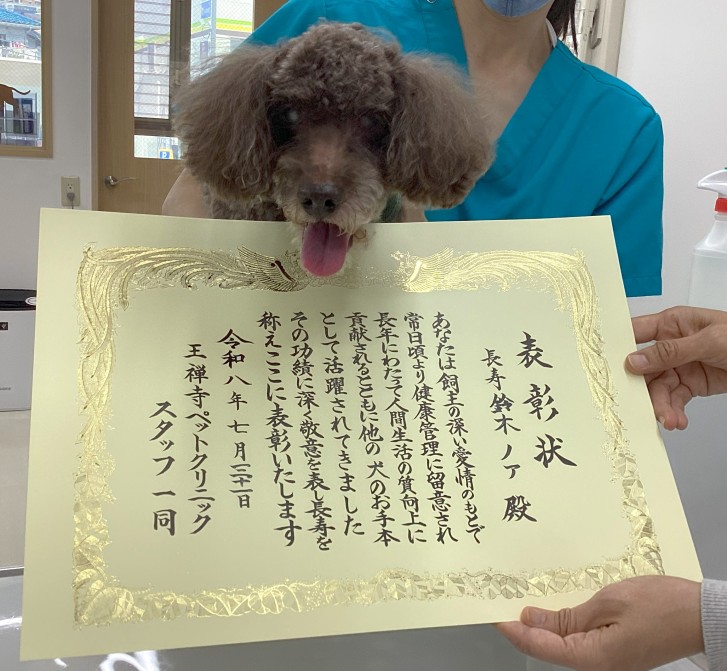 表彰状
長寿 鈴木 ノア 殿
あなたは 飼主の深い愛情のもとで
常日頃より健康管理に留意され
長年にわたって人間生活の質向上に
貢献されるとともに他の犬のお手本
として活躍されてきました
その功績に深く敬意を表し長寿を
称えここに表彰いたします
令和八年 七月
王禅寺ペットクリニック
スタッフ一同